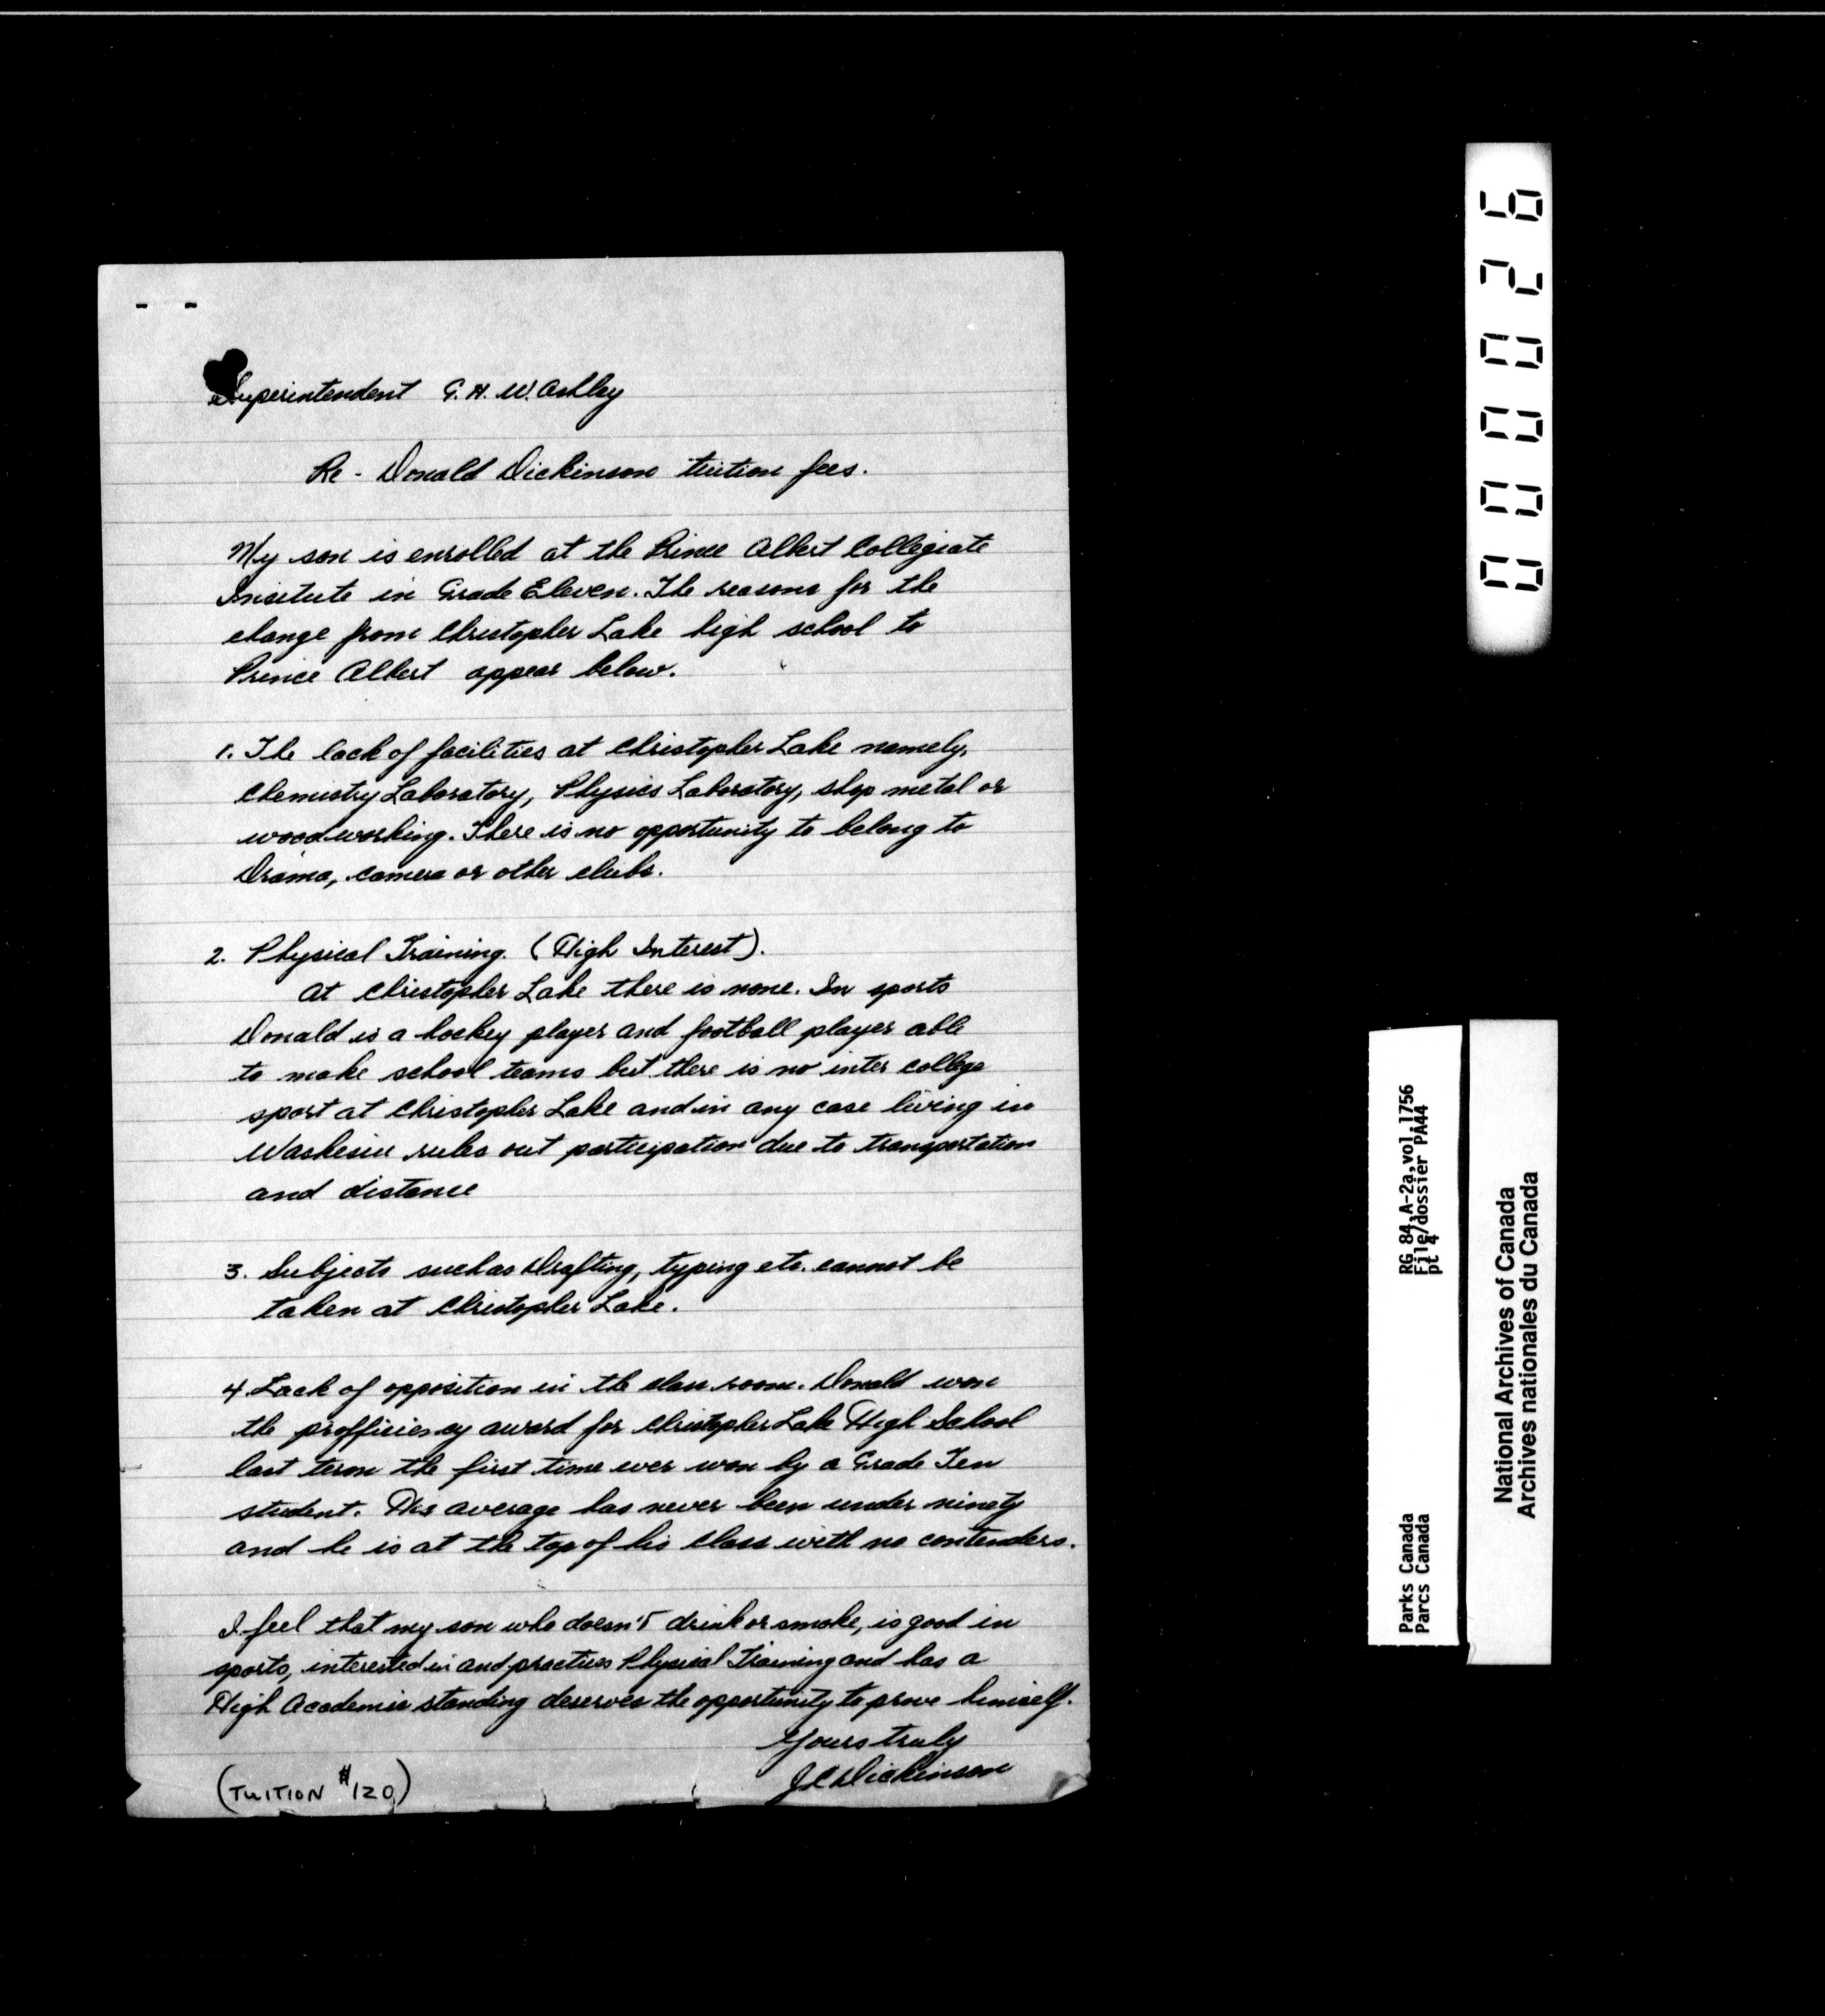 Superintendent G.H.W. Ashley
Re - Donald Dickinson tuition fees.
My son is enrolled at the Prince Albert Collegiate
Insitute in Grade Eleven. The reasons for the
change from Christopher Lake high school to
Prince Albert appear below.
1. The lack of facilities at Christopher Lake namely,
Chemistry Laboratory, Physics Laboratory, shop metal or
woodworking. There is no opportunity to belong to
Drama, camera or other clubs.
2. Physical Training. (High Interest).
At Christopher Lake there is none. In sports
Donald is a hockey player and football player able
to make school teams but there is no inter college
sport at Christopher Lake and in any case living in
Waskesiu rules out participation due to transportation
and distance
3. Subjects such as Drafting, typing etc. cannot be
taken at Christopher Lake.
4. Lack of opposition in the class room. Donald won
the profficiency award for Christopher Lake High School
last term the first time ever won by a Grade Ten
student. His average has never been under ninety
and he is at the top of his class with no contenders.
I feel that my son who doesn't drink or smoke, is good in
sports, interested in and practices Physical Training and has a
High Academic standing deserves the opportunity to prove himself.
Yours truly
J.C. Dickinson
(TUITION $120)
000026
RG 84,A-2a,vol.1756
File/dossier PA44
pt 4
Parks Canada
Parcs Canada
National Archives of Canada
Archives nationales du Canada